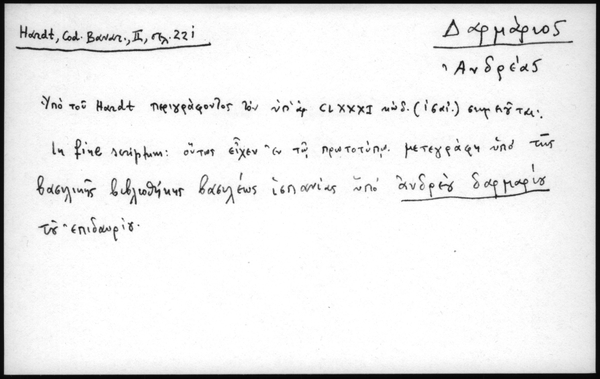 Hardt, Cod. Bavar., II, σελ. 221
Δαρμάριος
Ἀνδρέας
Ὑπὸ τοῦ Hardt περιγράφοντος τὸν ὑπ' ἀρ CLXXXI κώδ. (ἑλλ.) σημειοῦται:
In fine scriptum: οὕτως εἶχεν ἐν τῷ πρωτοτύπῳ. μετεγράφη ὑπὸ τῆς
βασιλικῆς βιβλιοθήκης βασιλέως ἱσπανίας ὑπὸ ἀνδρέου δαρμαρίου
τοῦ ἐπιδαυρίου.